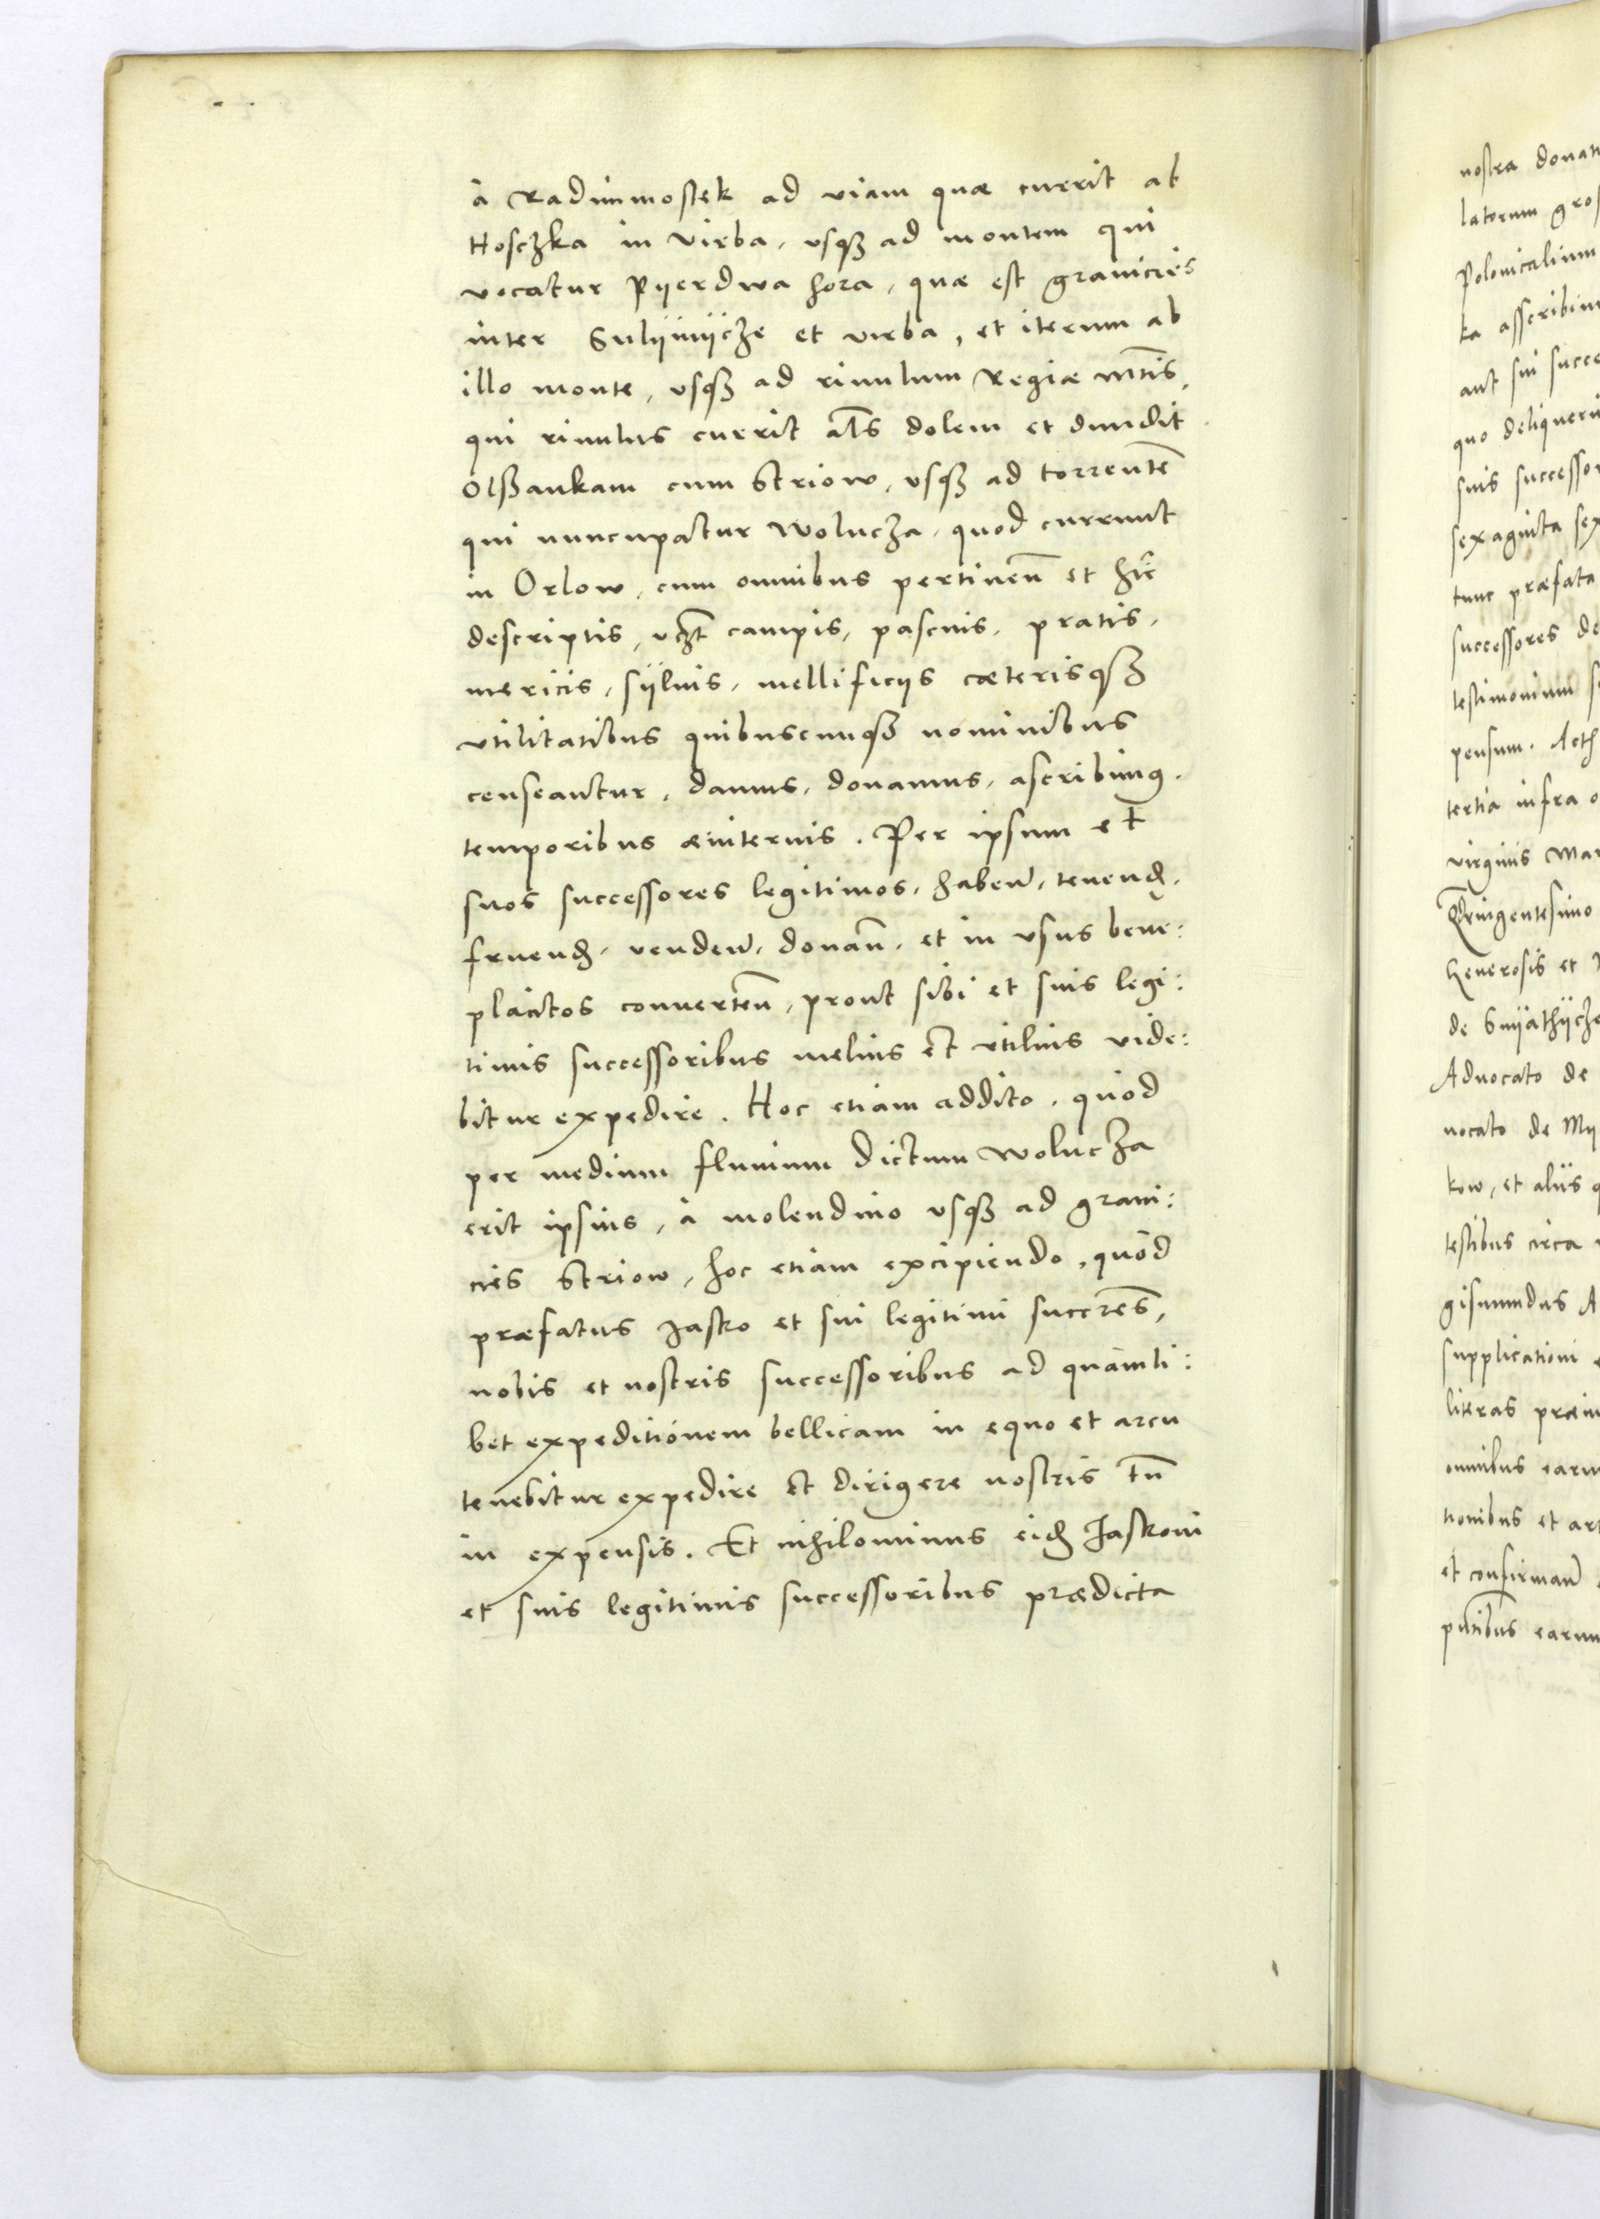 à Radimmostek ad viam quæ currit ab
Hosczka in Virba, usq̨ ad montem qui
vocatur Pyerdwa hora, quæ est granicies
inter Sulÿmÿcze et virba, et iterum ab
illo monte, usq̨ ad rivulum Regiæ Mtis,
qui rivulus currit als dolem et dundit
Olßankam cum Striow, usq̨ ad torrentē
qui nuncupatur Wolucza, quod currunt
in Orlow, cum omnibus pertinen̄ et hr̄e
descriptis, vzt campis, pascuis, pratis,
mericis, sÿlvis, mellificijs cæterisq̨
utilitatibus quibuscunq̨ nominibus
censeantur, damus, donamus, ascribimꝰ.
temporibus æviternis. Per ipsum et
suos successores legitimos, haben̄, tenend̨,
fruend̨, venden̄, donan̄, et in usus bene:
placitos converten̄, prout sibi et suis legi:
timis successoribus melius et utilius vide:
bitur expedire. Hoc etiam addito, quòd
per medium fluvium dictum Wolucza
erit ipsius, à molendino usq̨ ad grani:
cies Striow, hoc etiam excipiendo, quòd
præfatus Jasko et sui legitimi succr̄es,
nobis et nostris successoribus ad quamli:
bet expeditionem bellicam in equo et arcu
tenebitur expedire et dirigere nostris tn̄
in expensis. Et nihilominus eid̨ Jaskoni
et suis legitimis successoribus prædicta
nostra donati
latorum gros
Polonicalium
ka asscribim
aut sui succe
quo deliqueri
suis successor
sexaginta sex
tunc præfata
successores de
testimonium
pensum. Act
tertia infra o
virginis Mar
Qdringentesimo
Generosis et
de Svÿathÿcze
Advocato de
vocato de Mÿ
kow, et alijs q
testibus circa
gismundus A
supplicationi
literas præin
omnibus earum
tionibus et art
et confirman̄
pn̄tibus earum